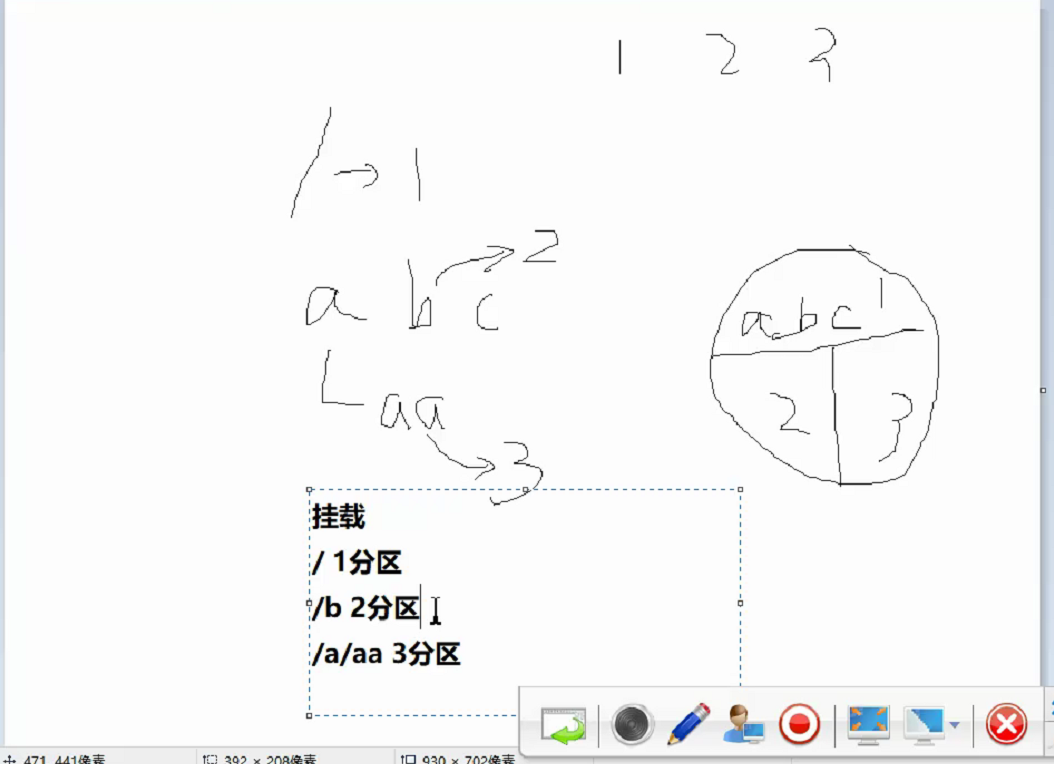 1 2 3
/→1
a b c →2
aa →3
a b c 1
2 3
挂载
/ 1分区
/b 2分区
/a/aa 3分区
471, 441像素 392 × 208像素 930 × 702像素